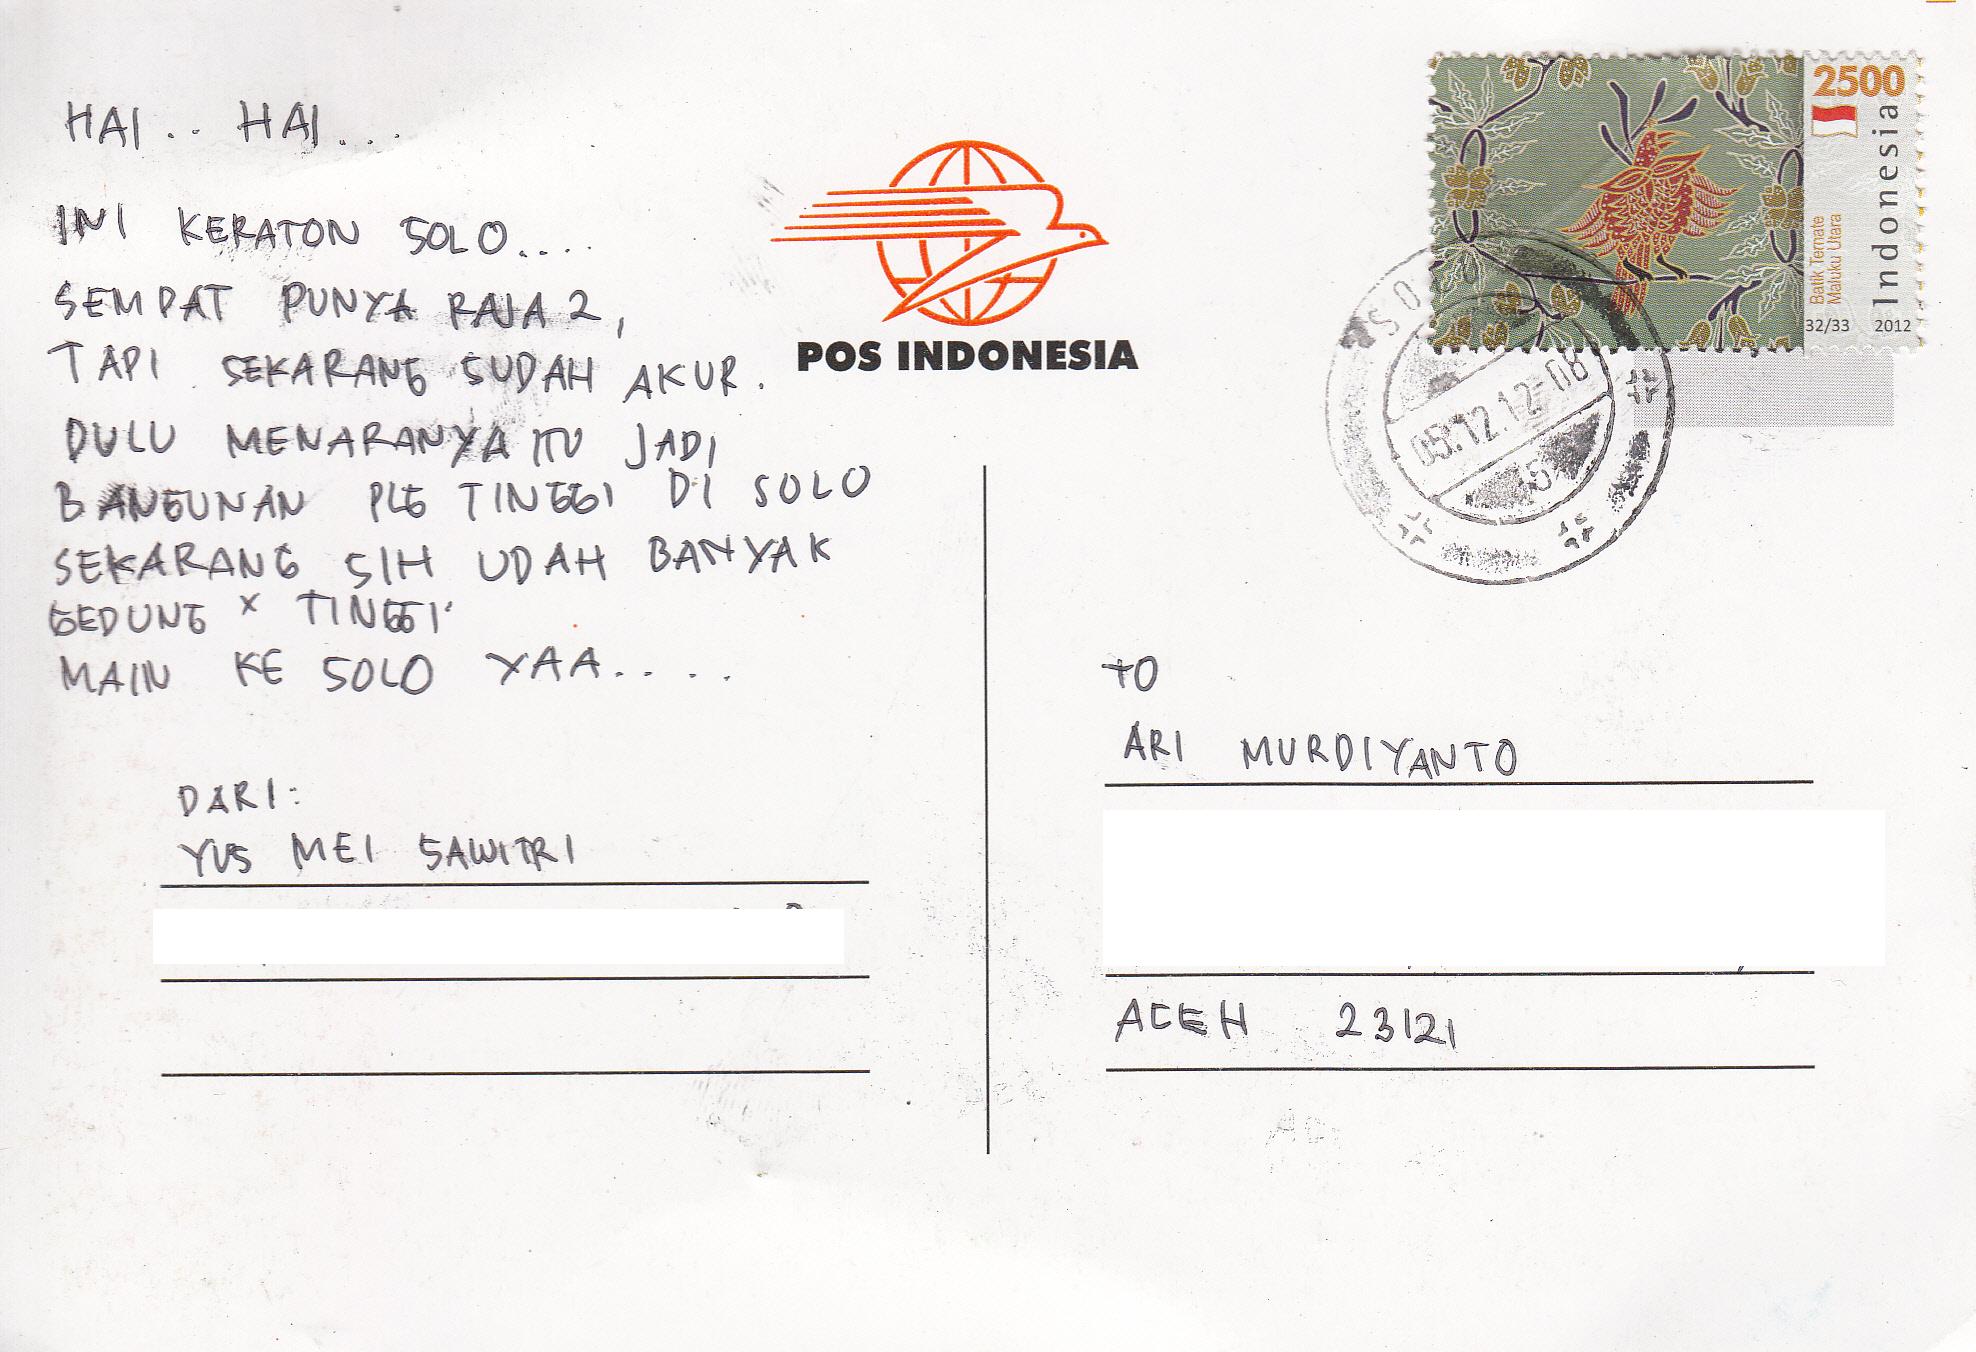 HAI.. HAI...
INI KERATON SOLO....
SEMPAT PUNYA RAJA 2,
TAPI SEKARANG SUDAH AKUR.
DULU MENARANYA ITU JADI
BANGUNAN PLG TINGGI DI SOLO
SEKARANG SIH UDAH BANYAK
GEDUNG X TINGGI.
MAIN KE SOLO YAA.....
DARI:
YUS MEI SAWITRI
POS INDONESIA
2500
Indonesia
Batik Ternate
Maluku Utara
32/33 2012
05.12.12-08
TO
ARI MURDIYANTO
ACEH 23121